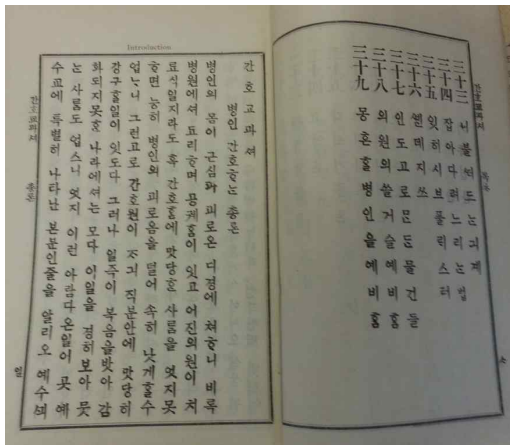 간호교과셔
三十三 니불
三十四 잡아다려 느리는 법
三十五
三十六 웰메지쓰
三十七 인도고로 믄든 물건들
三十八 의원의 쓸 거슬 예비홈
三十九 몽혼ᄒᆞᆯ 병인을 예비홈
Introduction
간호교과셔
병인 간호ᄒᆞᄂᆞᆫ 춍론
병인의 몸이 근심과 괴로온 디경에 쳐ᄒᆞ니 비록
병원에셔 됴리ᄒᆞ며 잇고 어진 의원이 쳐
간호홈에 맛당ᄒᆞᆫ 사ᄅᆞᆷ을 엇지 못
ᄒᆞ면 능히 병인의 괴로옴을 덜어 속히 낫게 ᄒᆞᆯ 수
업ᄂᆞ니 그런고로 간호원이 ᄌᆞ긔 직분 안에 맛당히
강구ᄒᆞᆯ 일이 잇도다 그러나 일즉이 복음을 밧아 감
화되지 못ᄒᆞᆫ 나라에셔는 모다 이 일을 경히 보아 뭇
ᄂᆞᆫ 사ᄅᆞᆷ도 업스니 엇지 이런 아ᄅᆞᆷ다온 일이 곳 예
수교에 특별히 나타난 본분인 줄을 알리오
간호교과셔
춍론
일